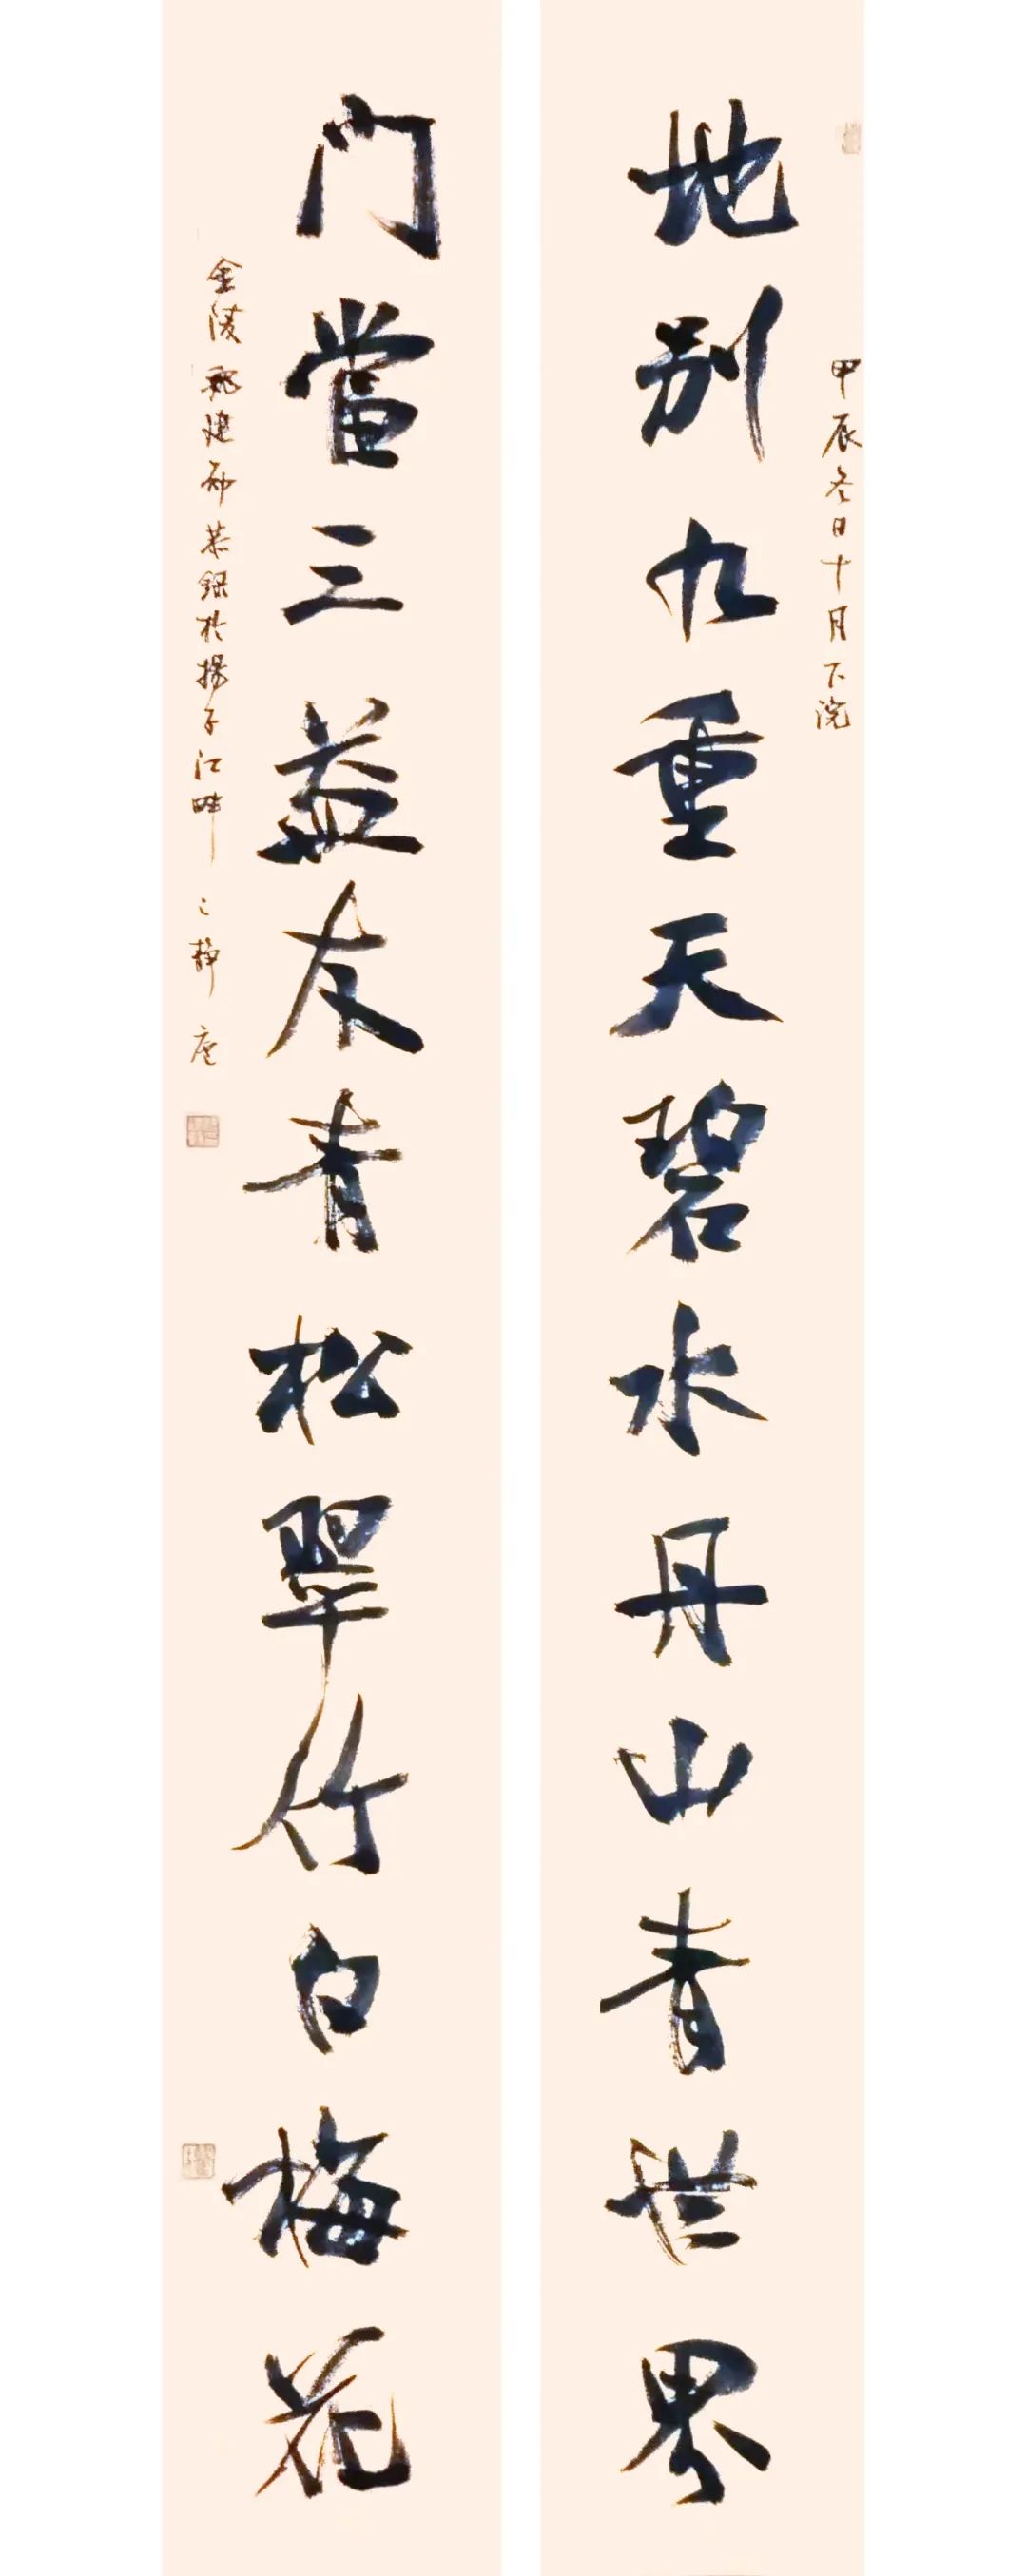 甲辰冬日十月下浣
地别九重天碧水丹山青世界
门當三益友青松翠竹白梅花
金陵 建 恭録於揚子江畔之靜庵